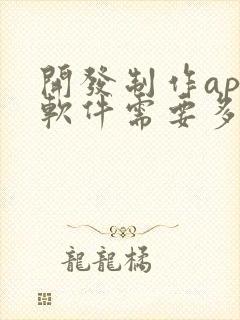 開發制作ap
軟件需要多
龍龍橘